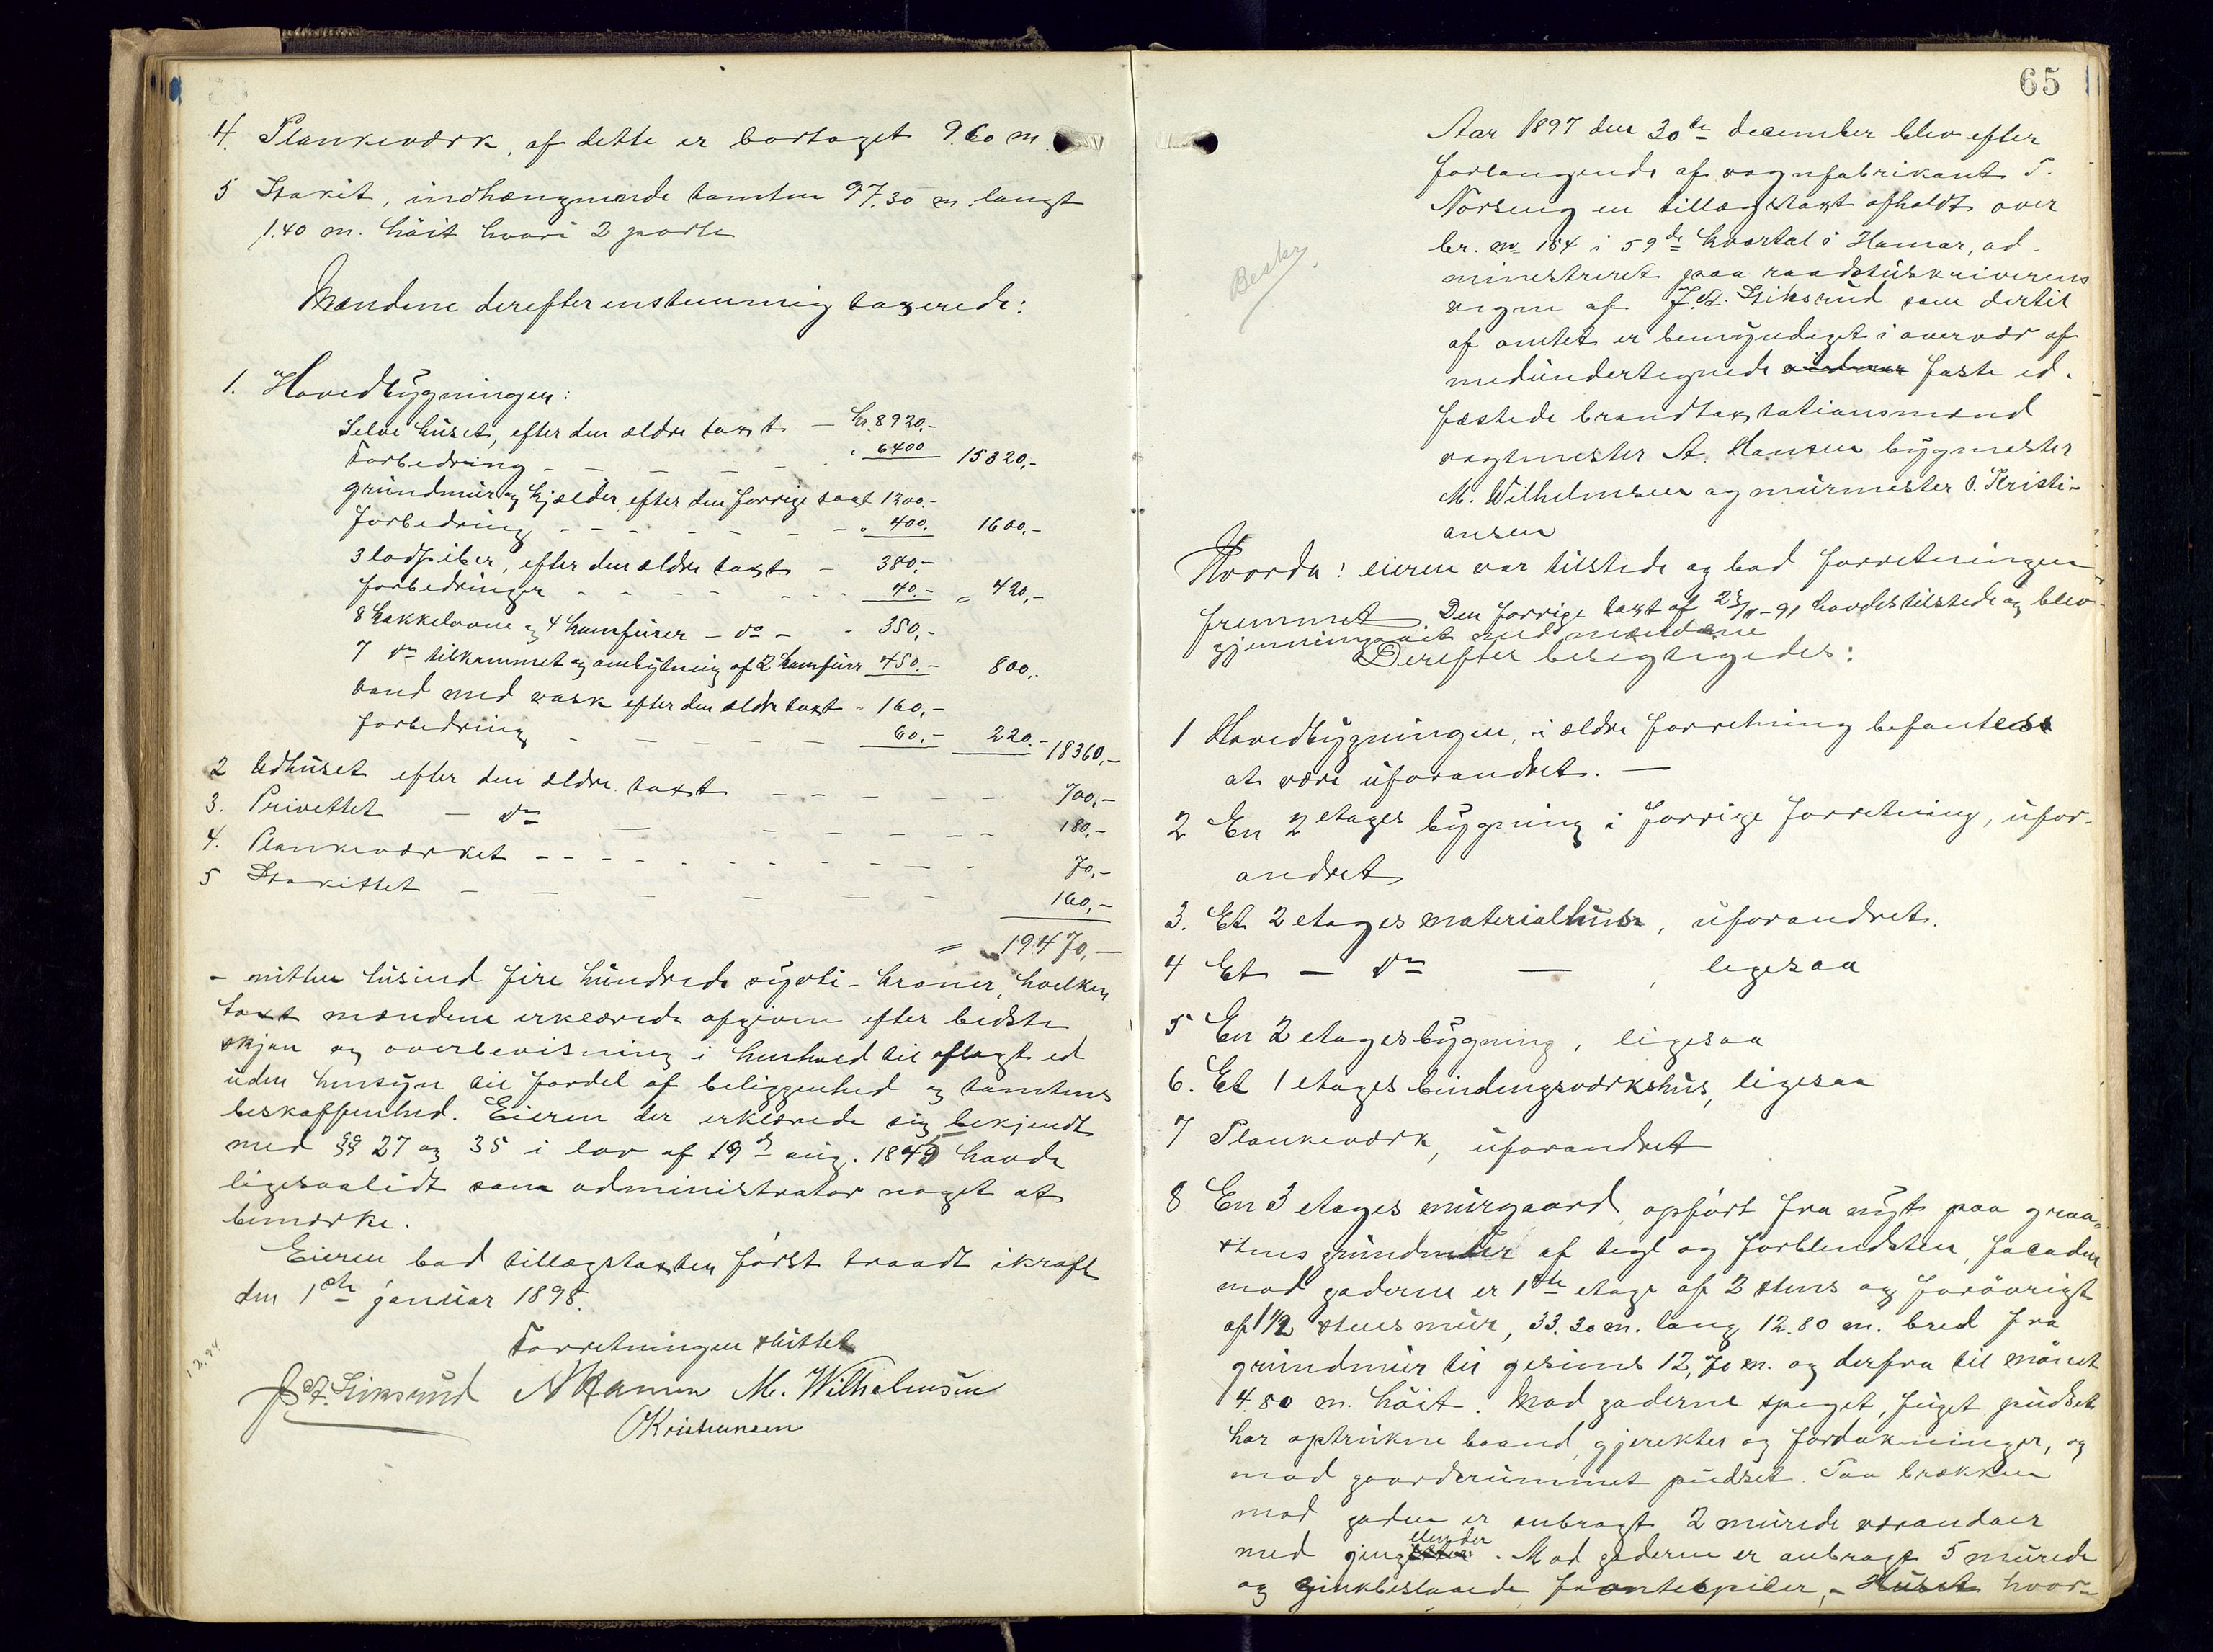 4. Plankeværk, af dette er borttaget 9.60 m.
5 Stakit, indhængnende tomten 97.30 m. langt
1.40 m. höit hvori 2 porte
Mændene derefter enstemmig taxerede:
1. Hovedbygningen:
Selve huset, efter den ældre taxt — Kr. 8920.-
Forbedring - - - - - " 6400 15320.-
grundmur og kjælder, efter den forrige taxt 1200.-
forbedring - - - - - - " 400. 1600.-
3 lodpiber, efter den ældre taxt - 380.-
forbedringer - - - - - - 40.- = 420,-
8 kakkelovne og 4 komfurer - do - - 350,-
7 do tilkommet og ombytning af 2 komfurer 450.- 800.-
vand med vask efter den ældre taxt - 160,-
forbedring - - - - - 60.- 220.- 18360,-
2 Udhuset efter den ældre taxt - - - - - 700,-
3. Privettet - do - - - - - 180,-
4. Plankeværket - - - - - - - - - - 70,-
5 Stakittet - - - - - - 160,-
= 19470,-
- nitten tusind fire hundrede sytti - kroner, hvilken
taxt mændene erklærede afgiven efter bedste
skjøn og overbevisning i henhold til aflagt ed
uden hensyn til fordel af beliggenhed og tomtens
beskaffenhed. Eieren der erklærede sig bekjendt
med §§ 27 og 35 i lov af 19de aug. 1845 havde
ligesaalidt som administrator noget at
bemærke.
Eieren bad tillægstaxten först traadt ikraft
den 1ste januar 1898.
Forretningen sluttet
J. A. Siksrud A Hansen M. Wilhelmsen
O Kristiansen
65
Aar 1897 den 30te december blev efter
forlangende af vognfabrikant T.
Norseng en tillægstaxt afholdt over
br. no 154 i 59de kvartal i Hamar, ad-
ministreret paa raadstuskriverens
vegne af J. A. Siksrud som dertil
af amtet er bemyndiget i overvær af
medundertegnede faste ed-
fæstede brandtaxtationsmænd
vagtmester A. Hansen bygmester
M. Wilhelmsen og murmester O. Kristi-
ansen
Beskr.
Hvorda: eieren var tilstede og bad forretningen
fremmet. Den forrige taxt af - 91 havdes tilstede og blev
gjennemgaaet med mændene
Derefter besigtigedes:
1 Hovedbygningen, i ældre forretning befantes
at være uforandret. —
2 En 2 etages bygning i forrige forretning, ufor-
andret
3. Et 2 etages materialhus, uforandret.
4 Et — do — , ligesaa
5 En 2 etagesbygning, ligesaa
6. Et 1 etages bindingsværkshus, ligesaa
7 Plankeværk, uforandret
8 En 3 etages murgaard opfört fra nyt paa graa-
stens grundmur af tegl og forblendsten, facaden
mod gaderne er 1ste etage af 2 stens og forövrigt
af 1 1/2 stens mur, 33.30 m. lang 12.80 m. bred fra
grundmur til gesims 12,70 m. og derfra til mönet
4.80 m. höit. Mod gaderne speget, fuget pudset
har optrukne baand, gjerekter og fordakninger, og
mod gaardsrummet pudset. Paa brækken
mod gaden er anbragt 2 murede verandaer
med . Mod gaderne er anbragt 5 murede
og zinkbeslaaede frontespiler, - Huset hvor-